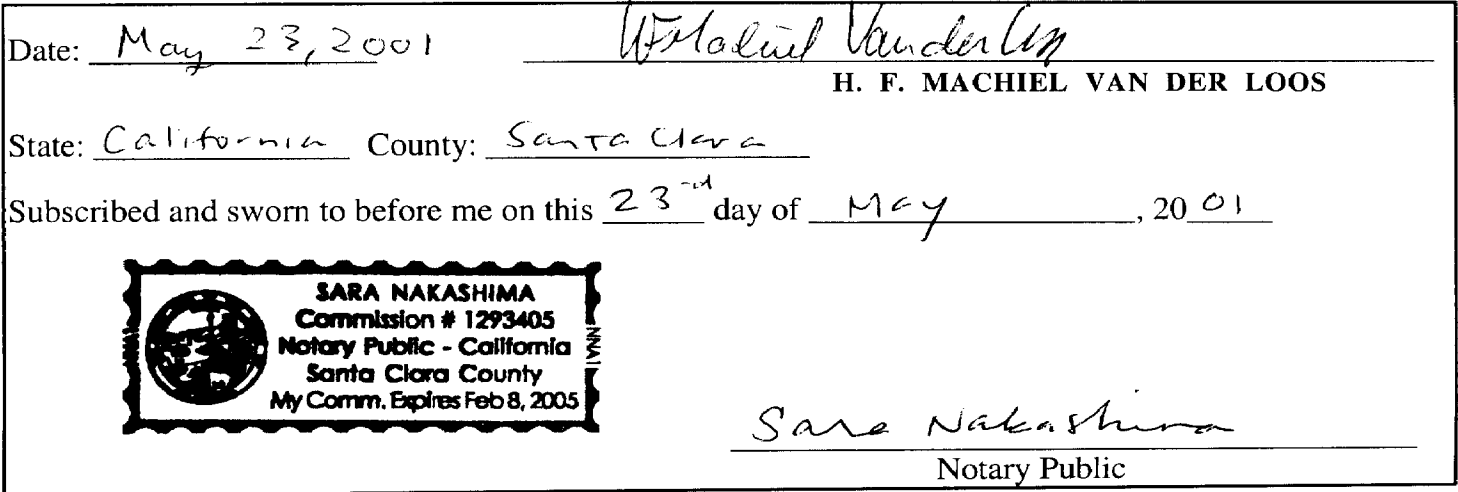 Date: May 23, 2001 HFMachiel Van der Loos
H. F. MACHIEL VAN DER LOOS
State: California County: Santa Clara
Subscribed and sworn to before me on this 23rd day of May, 20 01
SARA NAKASHIMA
Commission # 1293405
Notary Public - California
Santa Clara County
My Comm. Expires Feb 8, 2005
NNA1
Sara Nakashima
Notary Public